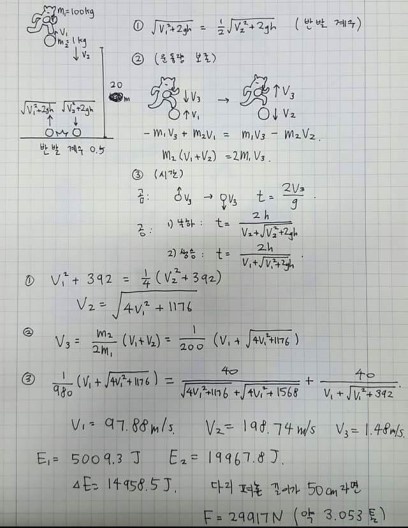 m₁=100kg
V₁
m₂=1kg
↓V₂
20
m
√V₁²+2gh √V₂²+2gh
반발 계수 0.5
① √V₁²+2gh = ½√V₂²+2gh (반발 계수)
② (운동량 보존)
↓V₃ → ↑V₃
↑V₁ ↓V₂
-m₁V₃ + m₂V₁ = m₁V₃ - m₂V₂
m₂(V₁+V₂) = 2m₁V₃
③ (시간)
곰: ↑V₃ → ↓V₃ t = 2V₃/g
공: 1) 낙하: t = 2h/(V₂+√V₂²+2gh)
2) 상승: t = 2h/(V₁+√V₁²+2gh)
① V₁² + 392 = ¼(V₂²+392)
V₂ = √4V₁²+1176
② V₃ = m₂/2m₁ (V₁+V₂) = 1/200 (V₁ + √4V₁²+1176)
③ 1/980 (V₁+√4V₁²+1176) = 40/(√4V₁²+1176 + √4V₁²+1568) + 40/(V₁+√V₁²+392)
V₁ = 97.88m/s. V₂ = 198.74m/s V₃ = 1.48m/s.
E₁= 5009.3 J E₂ = 19967.8 J.
ΔE = 14958.5 J. 다리 펴는 길이가 50cm라면
F = 29917N (약 3.053톤)